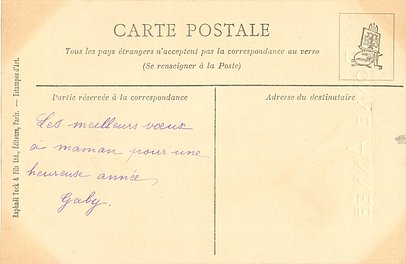 CARTE POSTALE
Tous les pays étrangers n'acceptent pas la correspondance au verso
(Se renseigner à la Poste)
Partie réservée à la correspondance
Adresse du destinataire
Les meilleurs vœux
à maman pour une
heureuse année,
Gaby.
Raphaël Tuck & Fils Ltd., Editeurs, Paris. — Estampes d'Art.